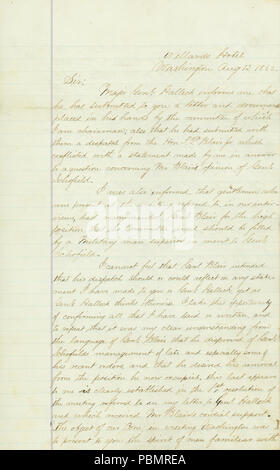 Willards Hotel
Washington Aug 13, 1862.
Sir:
Major Genl Halleck informs me that
he has submitted to you a letter and document
placed in his hands by the committee of which
I am chairman; also that he had submitted with
them a dispatch from the Hon. F. P. Blair Jr which
conflicted with a statement made by me in answer
to a question concerning Mr Blair's opinion of Genl
Schofield.
I was also informed that gentlemen who
are
had Genl Blair for the high
position that he
by a Military man superior in merit to Genl
Schofield.
I cannot feel that Genl Blair intended
that his dispatch should or could reflect on any state-
ment I have made to you or Genl Halleck yet as
Genl Halleck thinks otherwise I take this opportunity
of confirming all that I have said or written, and
to repeat that it was my clear understanding from
the language of Genl Blair that he disapproved of Genl
Schofields management of late and especially some of
his recent orders and that he desired his removal
from the position he now occupies, this last appears
to me as clearly established by the 1st resolution of
the meeting referred to in my letter to Genl Halleck
and which received Mr Blair's cordial support.
The object of our Com. in visiting Washington was
to present to you the views of men familiar with
alamy
PBMREA